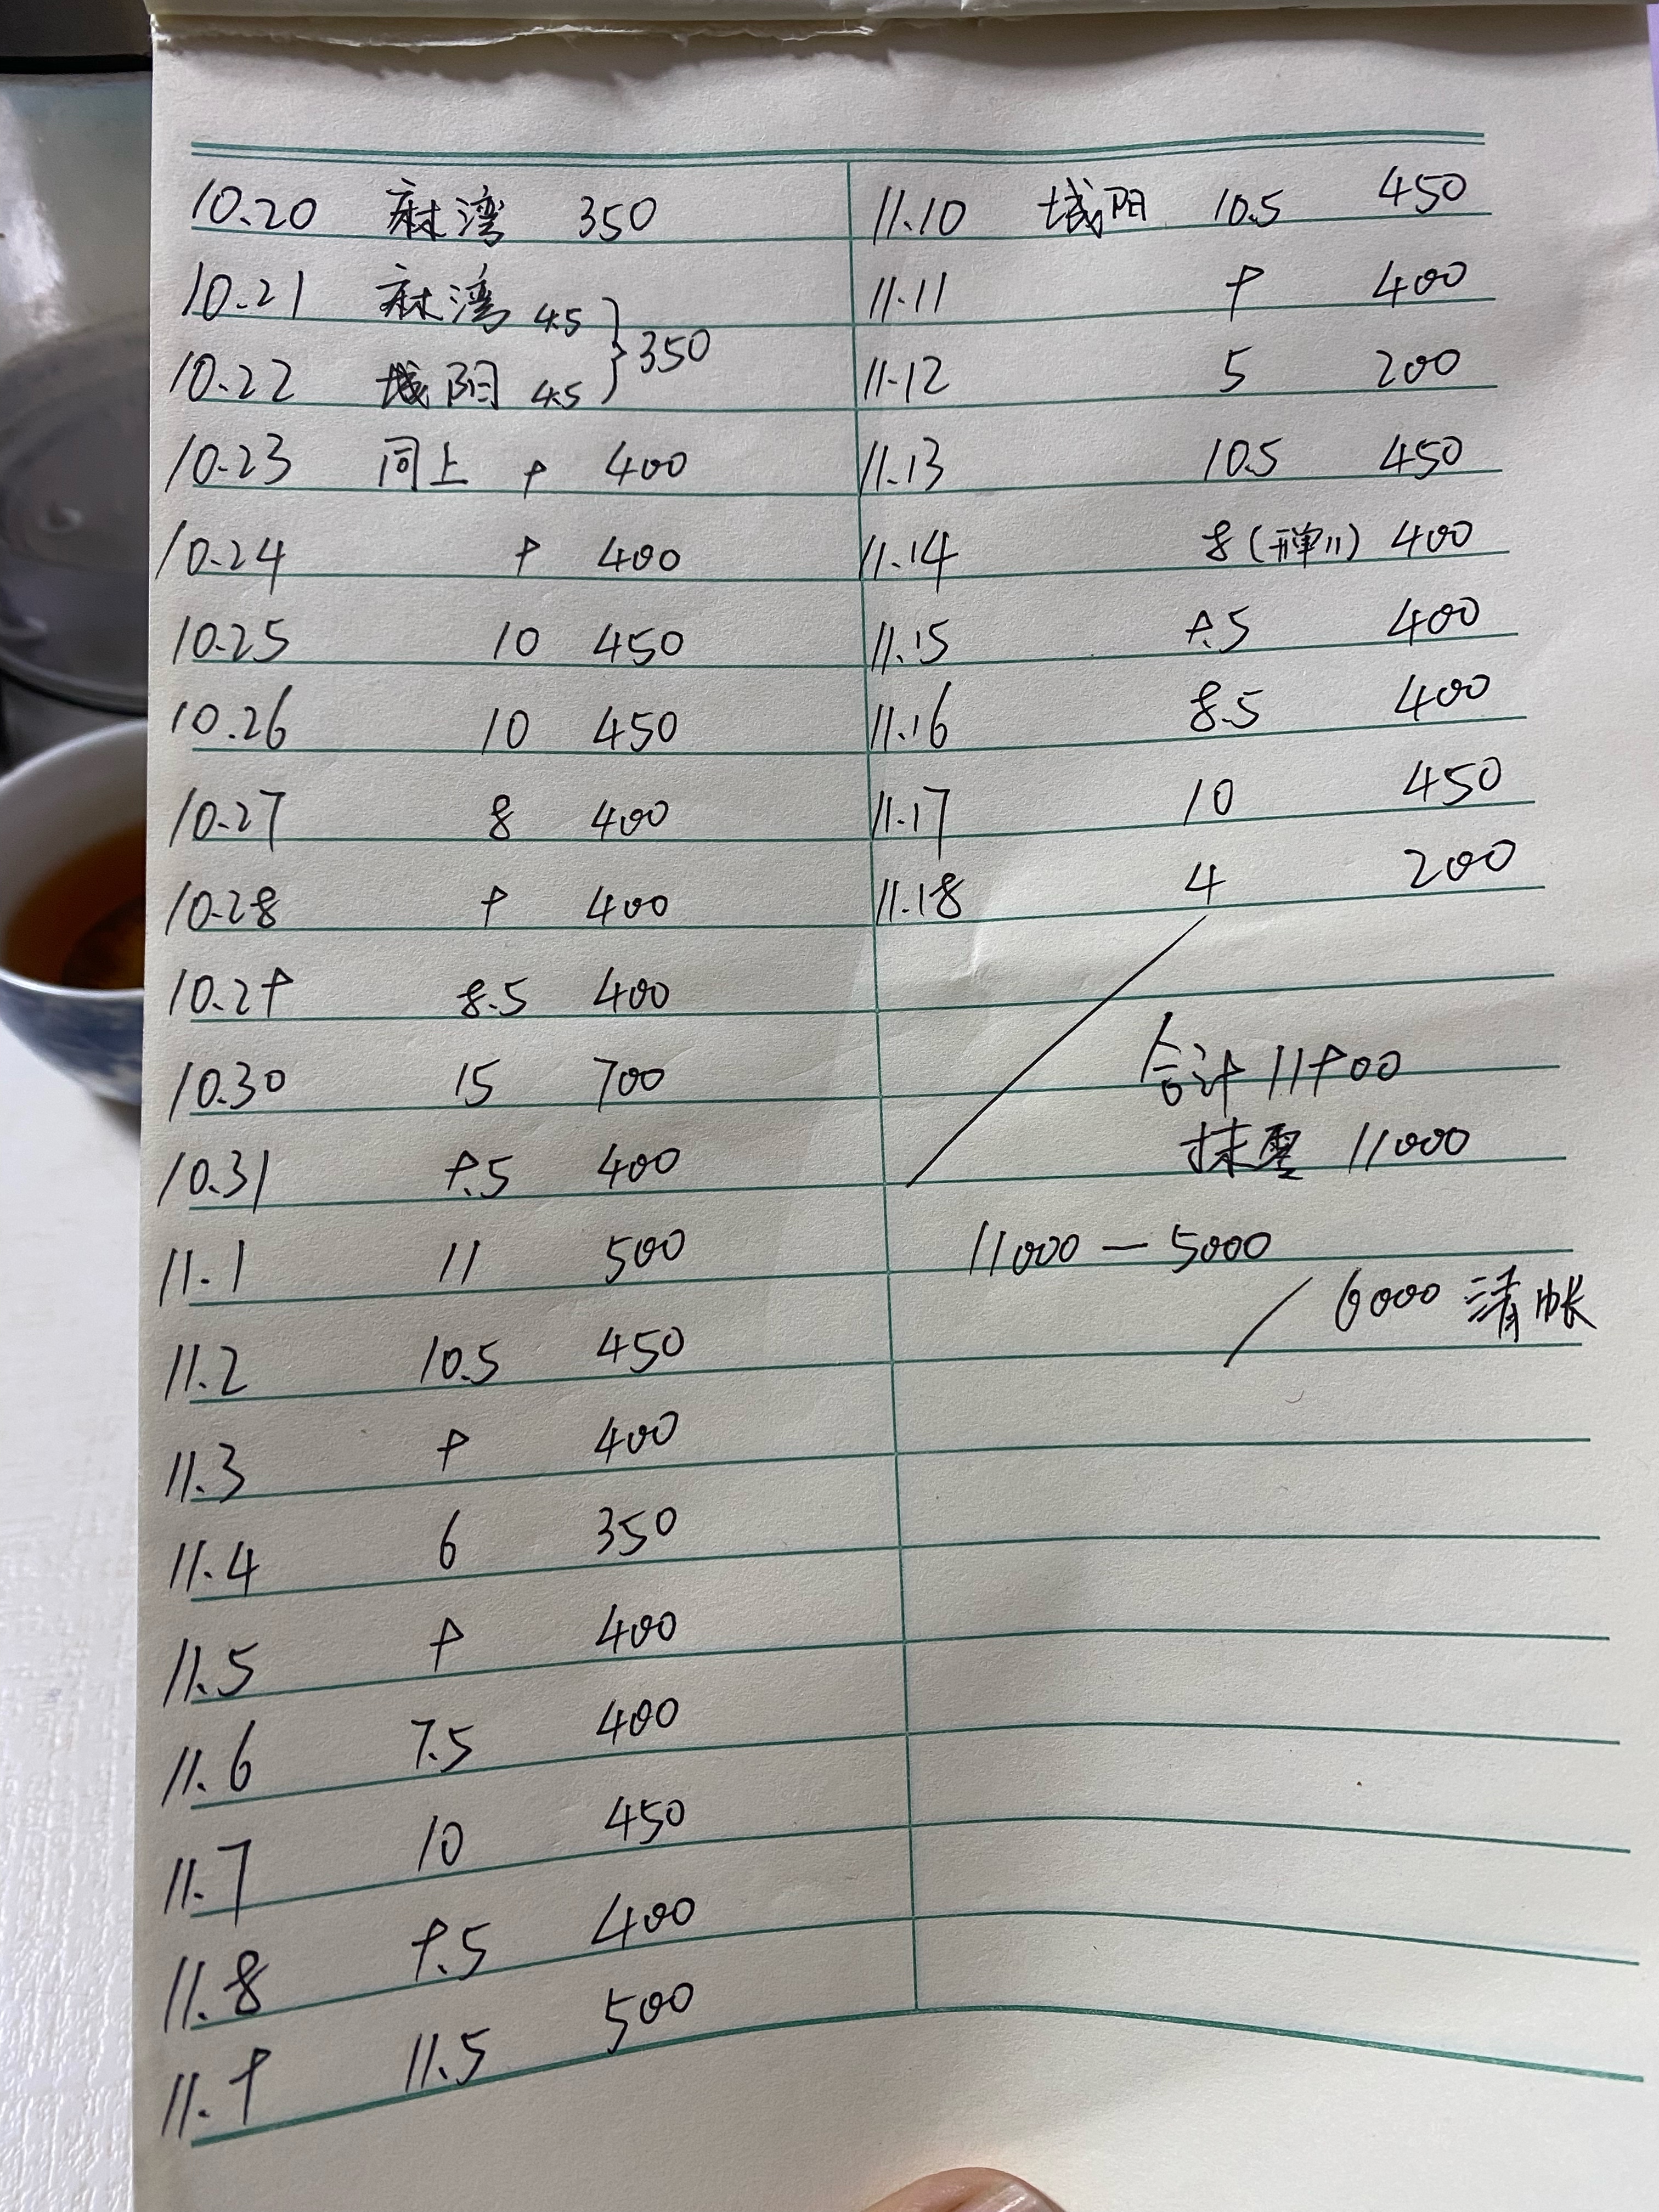 10.20 麻湾 350
10.21 麻湾 4.5
10.22 城阳 4.5 } 350
10.23 同上 9 400
10.24 9 400
10.25 10 450
10.26 10 450
10.27 8 400
10.28 9 400
10.29 8.5 400
10.30 15 700
10.31 9.5 400
11.1 11 500
11.2 10.5 450
11.3 9 400
11.4 6 350
11.5 9 400
11.6 7.5 400
11.7 10 450
11.8 9.5 400
11.9 11.5 500
11.10 城阳 10.5 450
11.11 9 400
11.12 5 200
11.13 10.5 450
11.14 8 400
11.15 9.5 400
11.16 8.5 400
11.17 10 450
11.18 4 200
合计 11900
抹零 11000
11000 — 5000
6000 清帐